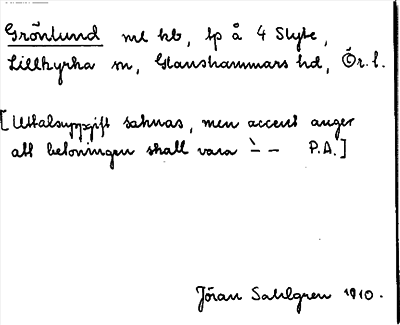 Grönlund ml hb, lp å 4 Slyte,
Lillkyrka sn, Glanshammars hd, Ör. l.
[Uttalsuppgift saknas, men accent anger
att betoningen skall vara `– – P.A.]
Jöran Sahlgren 1910.